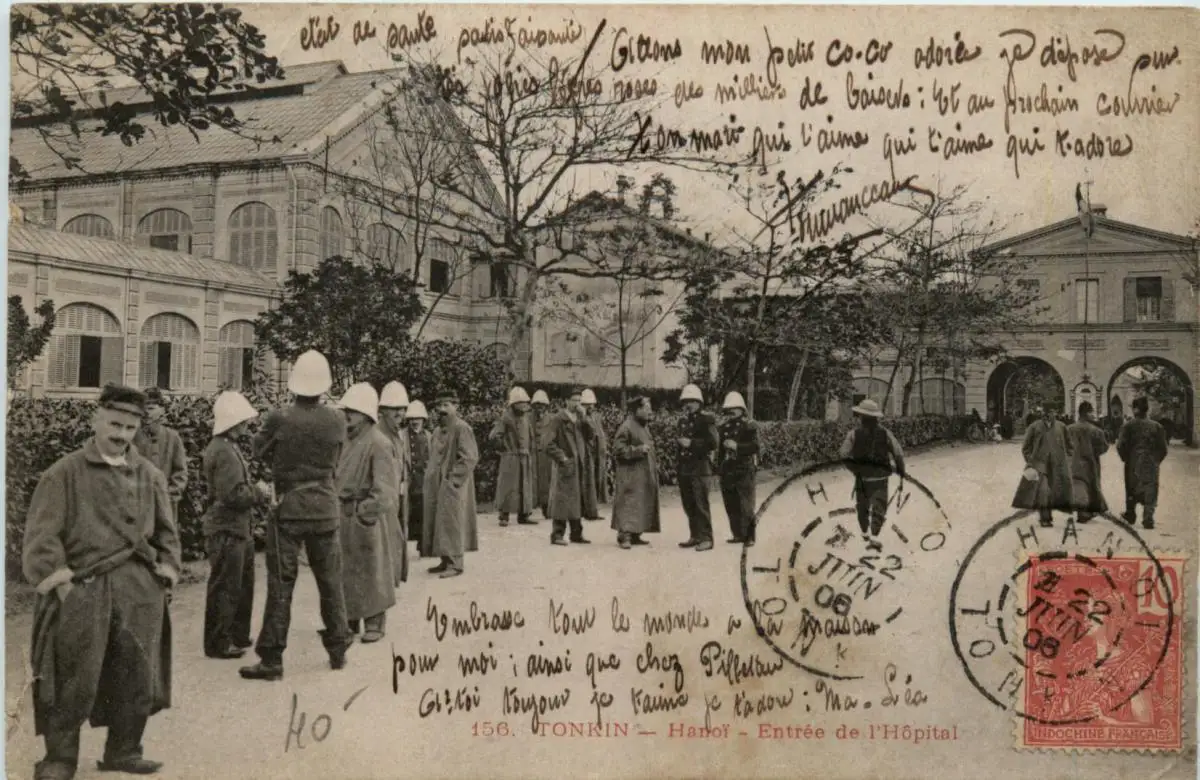 état de santé satisfaisante
Allons mon petit co-co adoré je dépose sur
tes joues lèvres roses des milliers de baisers : Et au prochain courrier
Ton mari qui t'aime qui t'aime qui t'adore
Embrasse tout le monde a la maison
pour moi ; ainsi que chez
Et toi toujour je t'aime je t'adore : Ma - Léa
40
156. TONKIN — Hanoï - Entrée de l'Hôpital
HANOI
22
JUIN
06
TONKIN
HANOI
22
JUIN
06
TONKIN
10
INDOCHINE FRANÇAISE